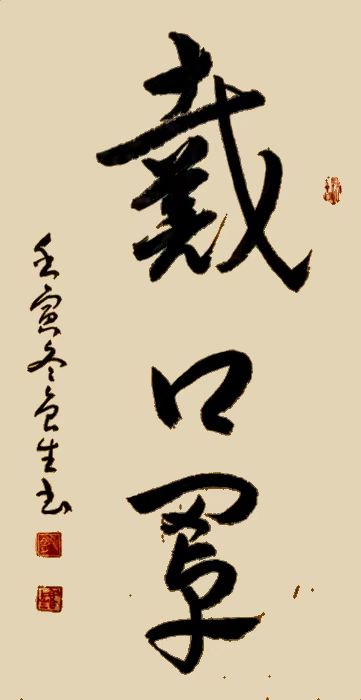 戴口罩
壬寅冬魚生书